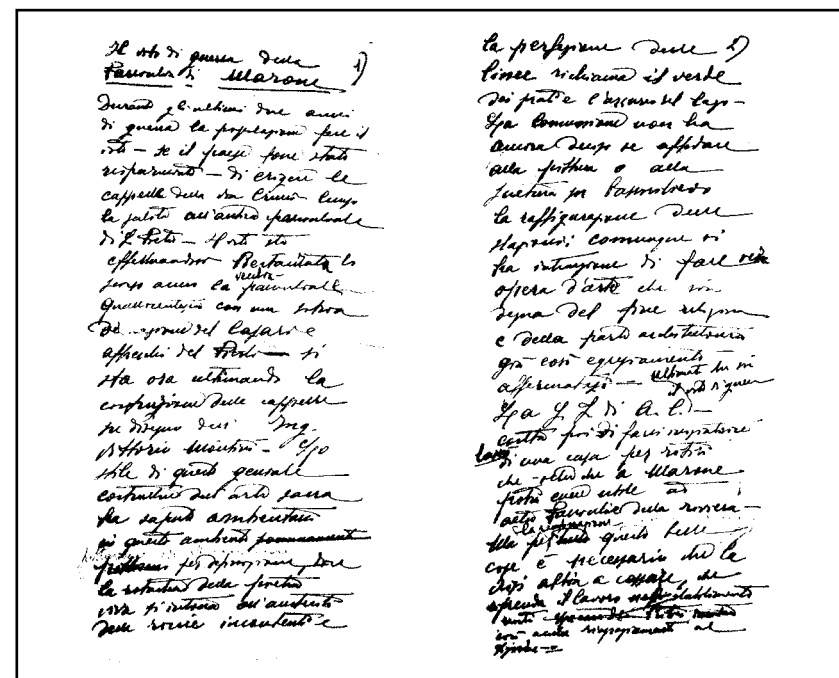 Il voto di guerra della 1)
Parrocchia di Marone
Durante gli ultimi due anni
di guerra la popolazione fece il
voto — se il paese fosse stato
risparmiato — di erigere le
cappelle della Via Crucis lungo
la salita all'antica parrocchiale
di S. Pietro — Il voto sta
effettuandosi Restaurata lo
scorso anno la vecchia parrocchiale
Quattrocentesca con una sobria
del Cajari e
affreschi del — si
sta ora ultimando la
costruzione delle cappelle
su disegno dell' Ing.
Vittorio Montini — Lo
stile di questo geniale
costruttore dell'arte sacra
ha saputo ambientarsi
in questo ambiente
per dove
la rotondità della pietra
viva si intona all'austerità
delle rocce incombenti e
la perfezione delle 2)
linee richiama il verde
dei prati e l'azzurro del lago —
La Commissione non ha
ancora deciso se affidare
alla pittura o alla
scultura
la raffigurazione delle
stazioni; comunque si
ha intenzione di fare vera
opera d'arte che sia
degna del fine religioso
e della parte architettonica
già così egregiamente
affermatasi — ultimato sia
il voto di guerra
La di A. C. —
poi di farsi
di una casa per ritiri
che a Marone
potrà essere utile ad
altre Parrocchie della riviera —
Ma per queste belle
cose è necessario che la
crisi abbia a cessare, che
riprenda il lavoro stabilimento
al